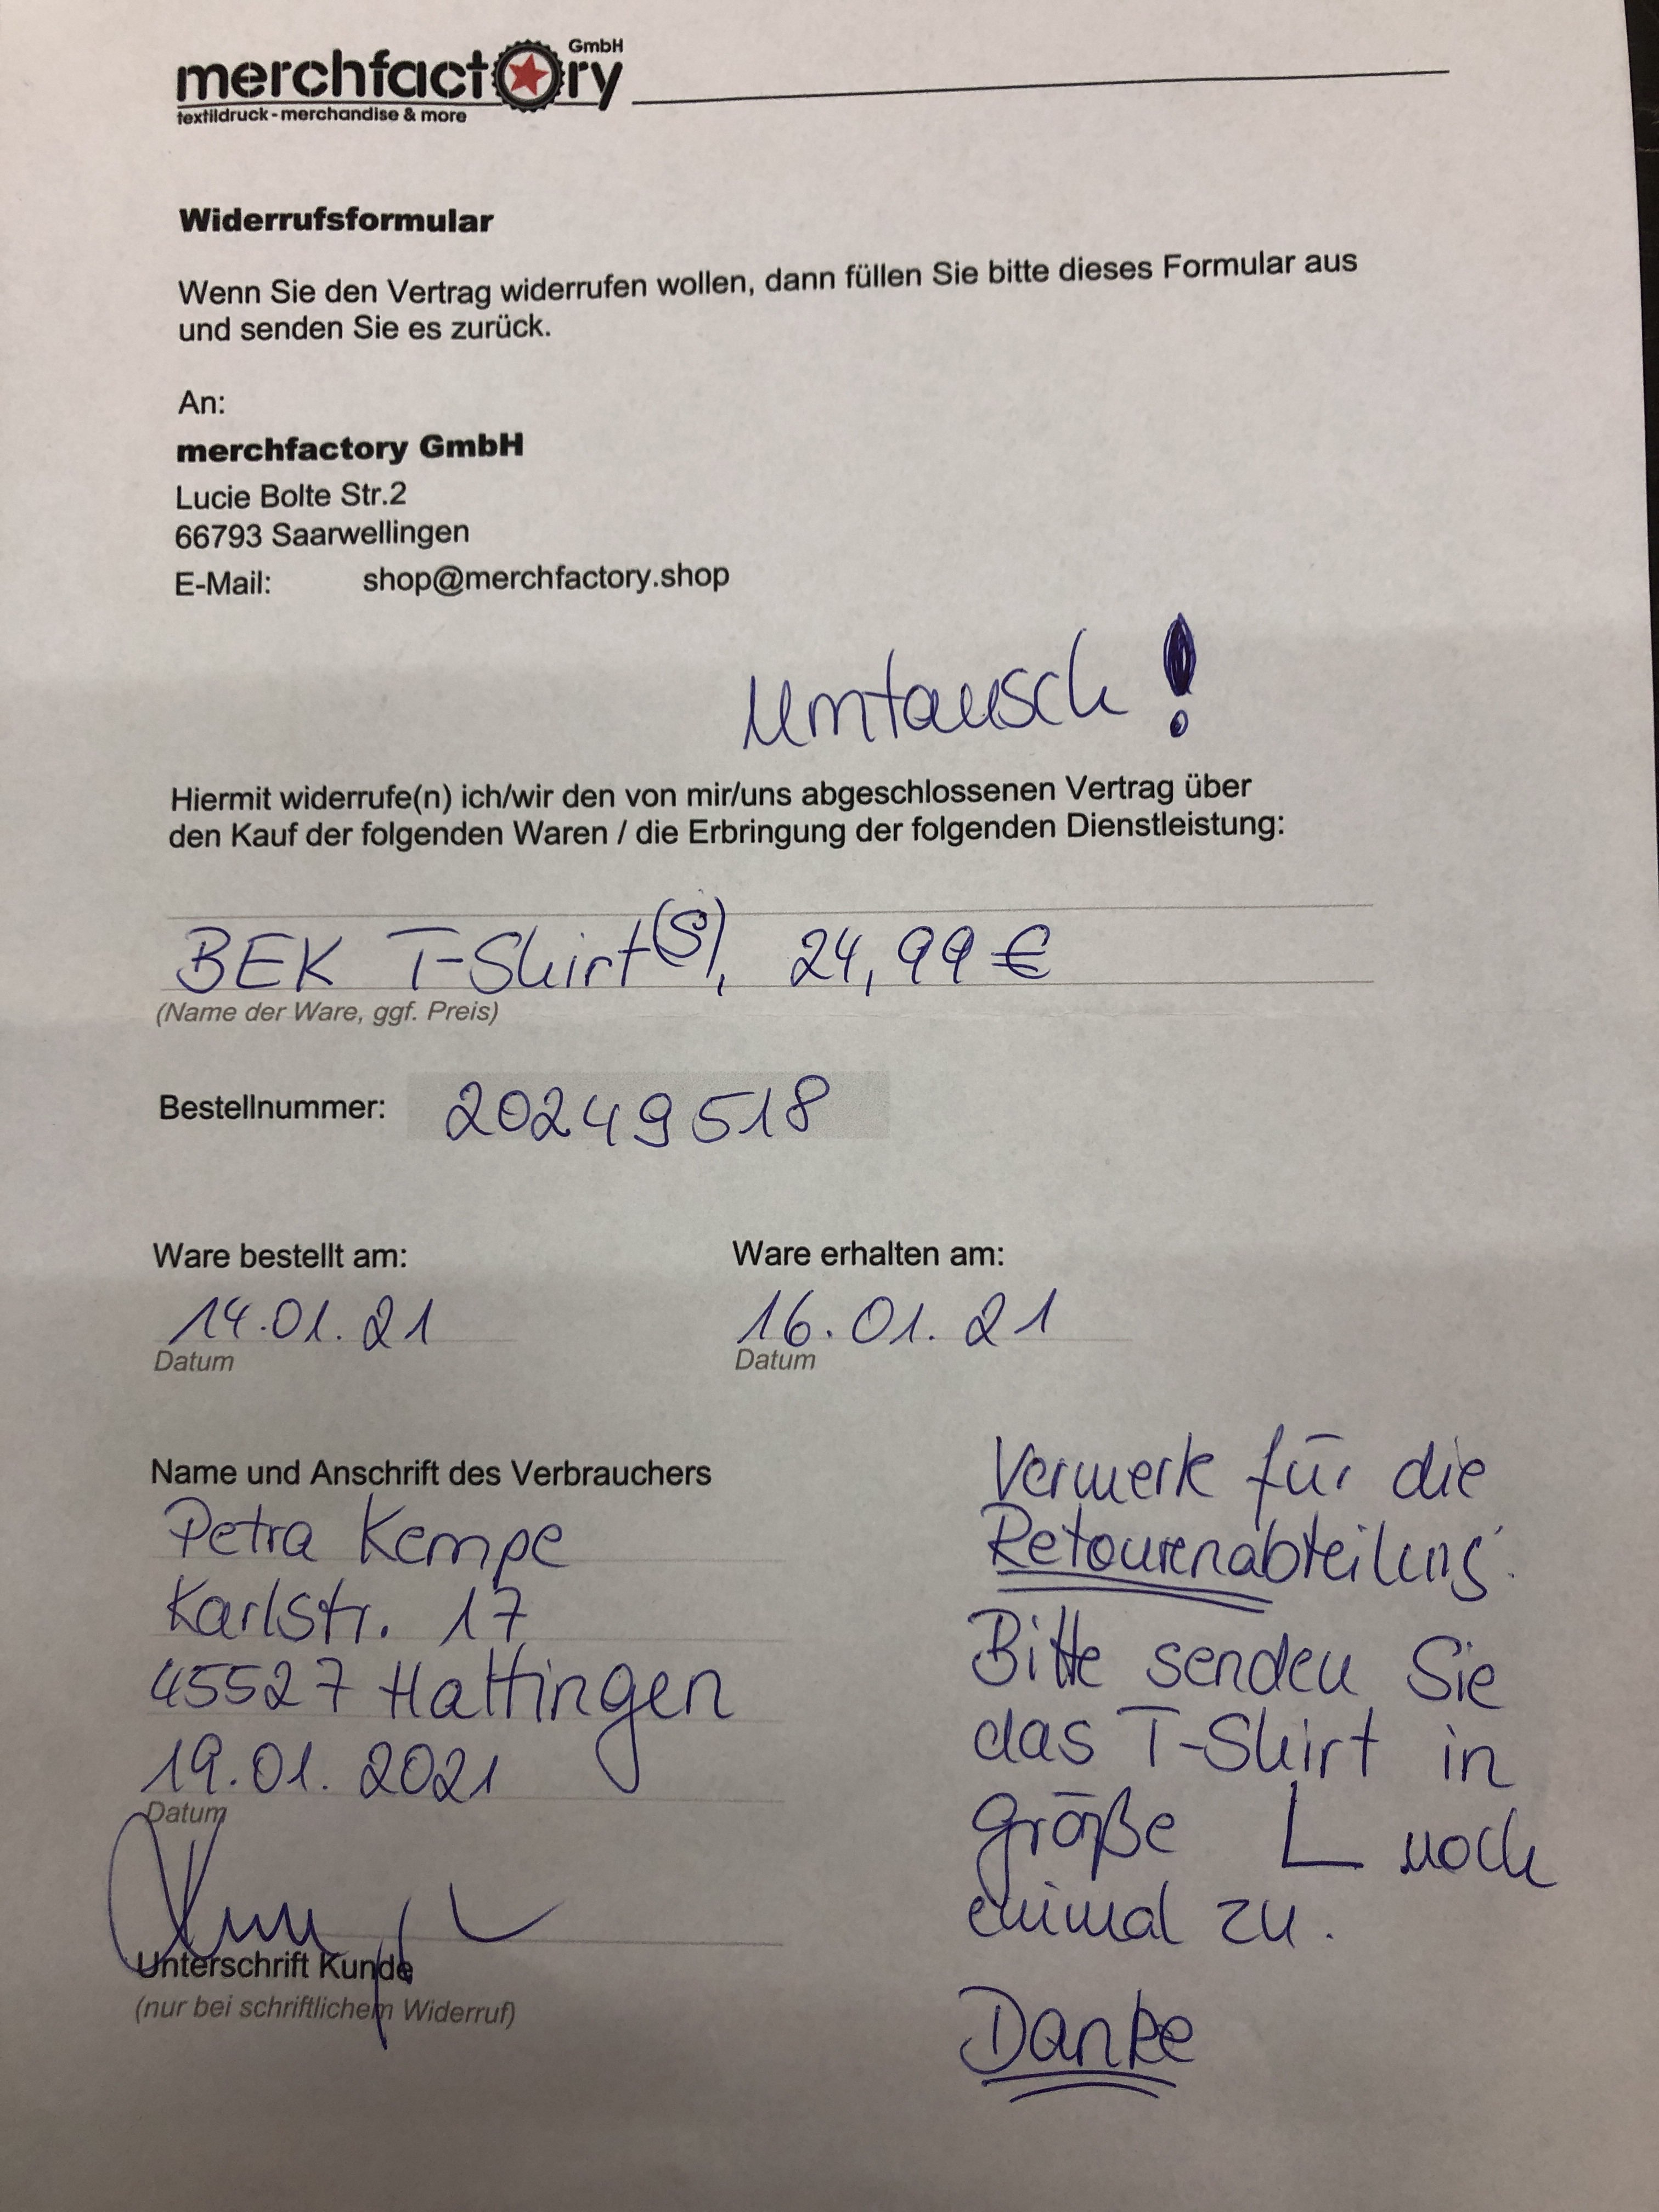 merchfactory GmbH
textildruck - merchandise & more
Widerrufsformular
Wenn Sie den Vertrag widerrufen wollen, dann füllen Sie bitte dieses Formular aus
und senden Sie es zurück.
An:
merchfactory GmbH
Lucie Bolte Str.2
66793 Saarwellingen
E-Mail: shop@merchfactory.shop
Umtausch!
Hiermit widerrufe(n) ich/wir den von mir/uns abgeschlossenen Vertrag über
den Kauf der folgenden Waren / die Erbringung der folgenden Dienstleistung:
BEK T-Shirt(S), 24,99 €
(Name der Ware, ggf. Preis)
Bestellnummer: 20249518
Ware bestellt am: Ware erhalten am:
14.01.21 16.01.21
Datum Datum
Name und Anschrift des Verbrauchers
Petra Kempe
Karlstr. 17
45527 Hattingen
19.01.2021
Datum
Unterschrift Kunde
(nur bei schriftlichem Widerruf)
Vermerk für die
Retourenabteilung:
Bitte senden Sie
das T-Shirt in
Größe L noch
einmal zu.
Danke